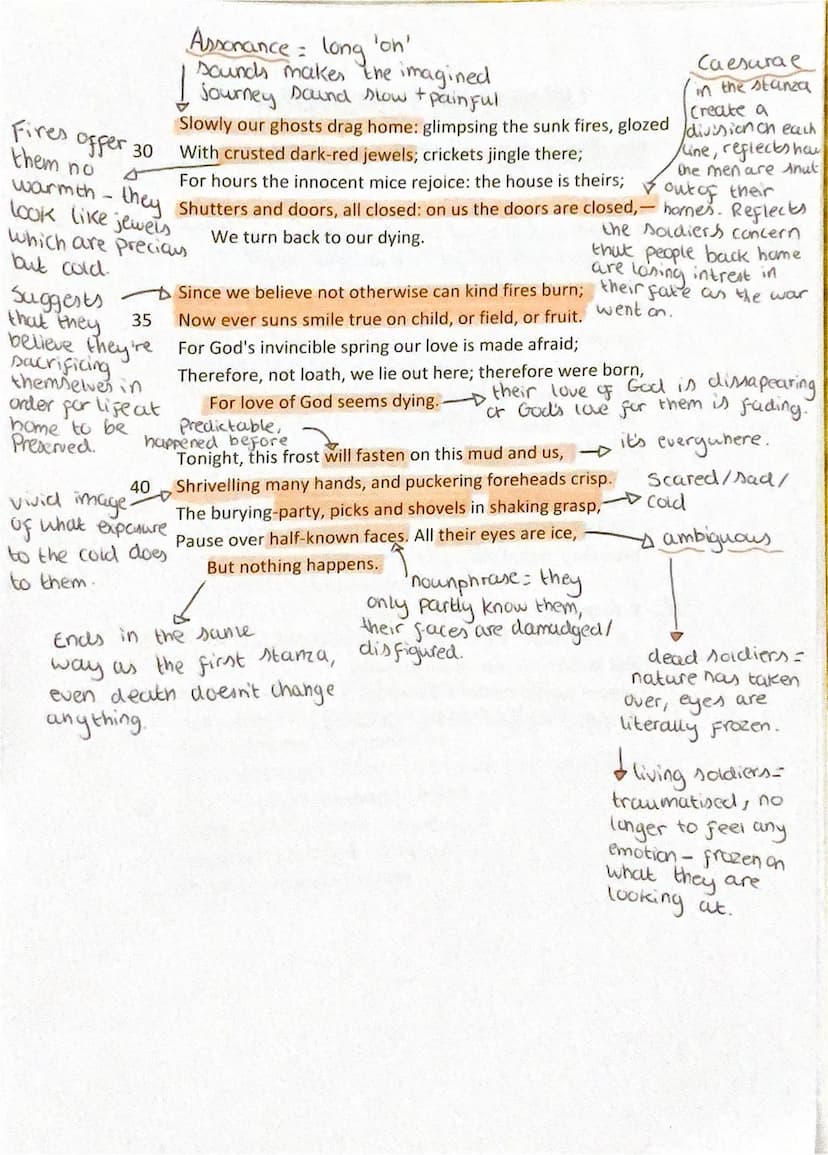 Assonance = long 'oh'
sounds makes the imagined
journey sound slow + painful
Caesurae
in the stanza
create a
division on each
line, reflects how
the men are shut
out of their
homes. Reflects
the soldiers concern
that people back home
are losing intrest in
their fate as the war
went on.
Fires offer
them no
warmth - they
look like jewels
which are precious
but cold.
Slowly our ghosts drag home: glimpsing the sunk fires, glozed
30 With crusted dark-red jewels; crickets jingle there;
For hours the innocent mice rejoice: the house is theirs;
Shutters and doors, all closed: on us the doors are closed,—
We turn back to our dying.
Suggests
that they
believe they're
sacrificing
themselves in
order for life at
home to be
preserved.
Since we believe not otherwise can kind fires burn;
35 Now ever suns smile true on child, or field, or fruit.
For God's invincible spring our love is made afraid;
Therefore, not loath, we lie out here; therefore were born,
For love of God seems dying.
their love of God is dissapearing
or God's love for them is fading.
Predictable,
happened before
Tonight, this frost will fasten on this mud and us,
it's everywhere.
40 Shrivelling many hands, and puckering foreheads crisp.
The burying-party, picks and shovels in shaking grasp,
Scared/sad/
cold
Pause over half-known faces. All their eyes are ice,
ambiguous
But nothing happens.
vivid image
of what exposure
to the cold does
to them.
nounphrase = they
only partly know them,
their faces are damadged/
disfigured.
Ends in the same
way as the first stanza,
even death doesn't change
anything.
dead soldiers =
nature has taken
over, eyes are
literally frozen.
living soldiers =
traumatised, no
longer to feel any
emotion - frozen on
what they are
looking at.